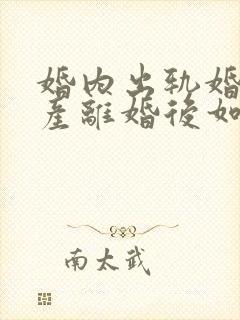 婚内出轨婚
產離婚後如
南太武